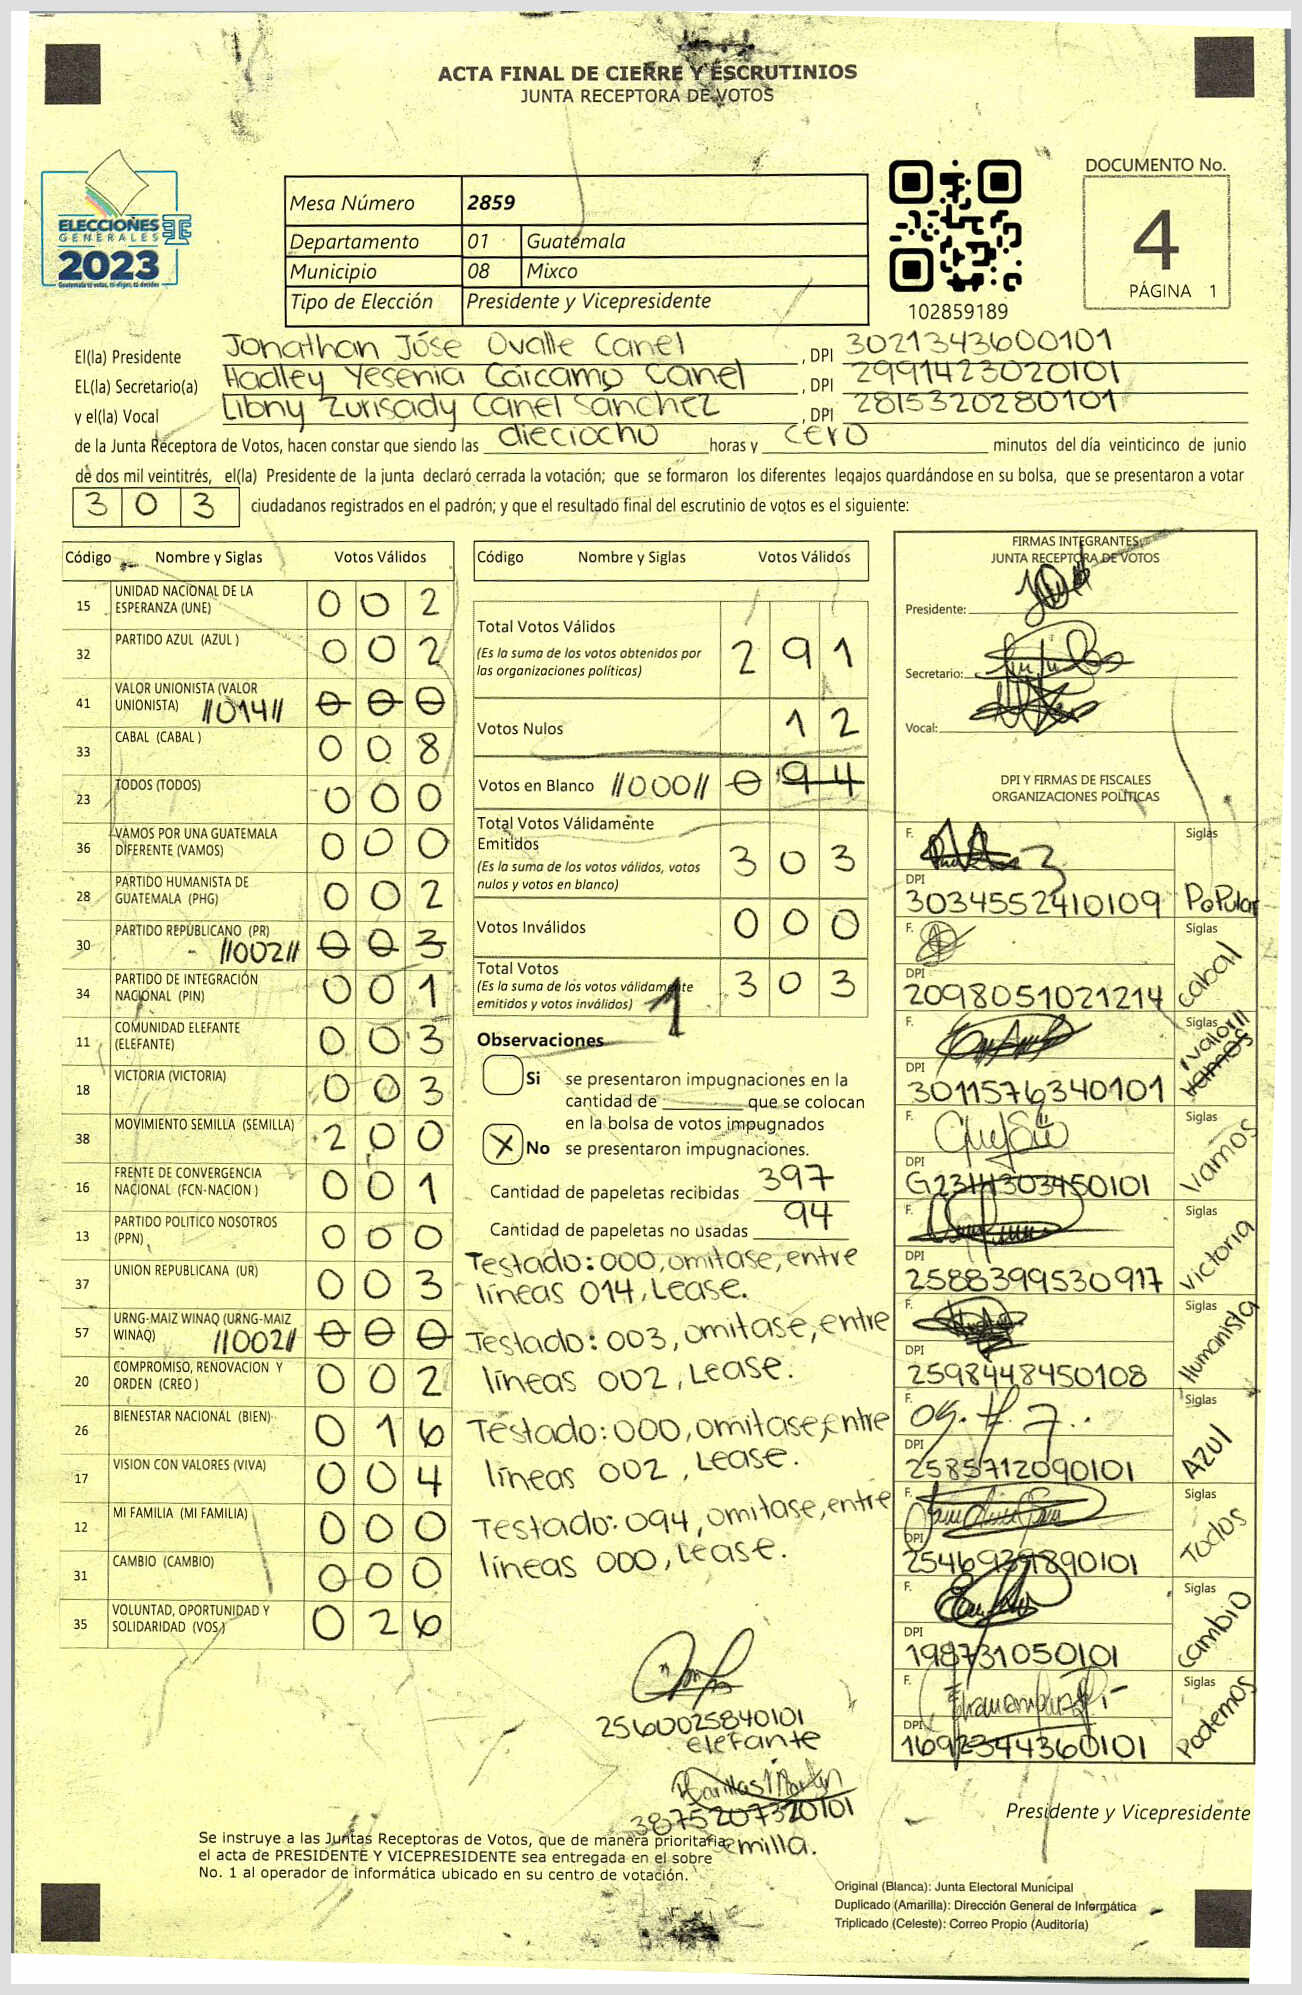 ACTA FINAL DE CIERRE Y ESCRUTINIOS
JUNTA RECEPTORA DE VOTOS
ELECCIONES
GENERALES
2023
Guatemala tú votas, tú eliges, tú decides
Mesa Número 2859
Departamento 01 Guatemala
Municipio 08 Mixco
Tipo de Elección Presidente y Vicepresidente
102859189
DOCUMENTO No.
4
PÁGINA 1
El(la) Presidente Jonathan Jóse Ovalle Canel, DPI 3021343600101
EL(la) Secretario(a) Hadley Yesenia Cárcamo Canel, DPI 2991423020101
y el(la) Vocal Libny Zurisady Canel Sánchez, DPI 2815320280101
de la Junta Receptora de Votos, hacen constar que siendo las dieciocho horas y cero minutos del día veinticinco de junio
de dos mil veintitrés, el(la) Presidente de la junta declaró cerrada la votación; que se formaron los diferentes legajos guardándose en su bolsa, que se presentaron a votar
303 ciudadanos registrados en el padrón; y que el resultado final del escrutinio de votos es el siguiente:
Código Nombre y Siglas Votos Válidos
15 UNIDAD NACIONAL DE LA ESPERANZA (UNE) 0 0 2
32 PARTIDO AZUL (AZUL ) 0 0 2
41 VALOR UNIONISTA (VALOR UNIONISTA) //014// 0 0 0
33 CABAL (CABAL ) 0 0 8
23 TODOS (TODOS) 0 0 0
36 VAMOS POR UNA GUATEMALA DIFERENTE (VAMOS) 0 0 0
28 PARTIDO HUMANISTA DE GUATEMALA (PHG) 0 0 2
30 PARTIDO REPUBLICANO (PR) //002// 0 0 3
34 PARTIDO DE INTEGRACIÓN NACIONAL (PIN) 0 0 1
11 COMUNIDAD ELEFANTE (ELEFANTE) 0 0 3
18 VICTORIA (VICTORIA) 0 0 3
38 MOVIMIENTO SEMILLA (SEMILLA) 2 0 0
16 FRENTE DE CONVERGENCIA NACIONAL (FCN-NACION ) 0 0 1
13 PARTIDO POLITICO NOSOTROS (PPN) 0 0 0
37 UNION REPUBLICANA (UR) 0 0 3
57 URNG-MAIZ WINAQ (URNG-MAIZ WINAQ) //002// 0 0 0
20 COMPROMISO, RENOVACION Y ORDEN (CREO ) 0 0 2
26 BIENESTAR NACIONAL (BIEN) 0 1 6
17 VISION CON VALORES (VIVA) 0 0 4
12 MI FAMILIA (MI FAMILIA) 0 0 0
31 CAMBIO (CAMBIO) 0 0 0
35 VOLUNTAD, OPORTUNIDAD Y SOLIDARIDAD (VOS ) 0 2 6
Código Nombre y Siglas Votos Válidos
Total Votos Válidos 2 9 1
(Es la suma de los votos obtenidos por
las organizaciones políticas)
Votos Nulos 1 2
Votos en Blanco //000// 0 9 4
Total Votos Válidamente
Emitidos 3 0 3
(Es la suma de los votos válidos, votos
nulos y votos en blanco)
Votos Inválidos 0 0 0
Total Votos 3 0 3
(Es la suma de los votos válidamente
emitidos y votos inválidos) 1
Observaciones
Si se presentaron impugnaciones en la
cantidad de ________ que se colocan
en la bolsa de votos impugnados
X No se presentaron impugnaciones.
Cantidad de papeletas recibidas 397
Cantidad de papeletas no usadas 94
Testado: 000, omitase, entre
líneas 014, Lease.
Testado: 003, omitase, entre
líneas 002, Lease.
Testado: 000, omitase, entre
líneas 002, Lease.
Testado: 094, omitase, entre
líneas 000, Lease.
2560025840101
elefante
3875207320101
emilla.
FIRMAS INTEGRANTES
JUNTA RECEPTORA DE VOTOS
Presidente:
Secretario:
Vocal:
DPI Y FIRMAS DE FISCALES
ORGANIZACIONES POLÍTICAS
F. Siglas
DPI
3034552410109 PoPular
F. Siglas
DPI
2098051021214 cabal
F. Siglas
DPI
3011576340101 valor// vamos
F. Siglas
DPI
G2311303450101 Vamos
F. Siglas
DPI
2588399530917 Victoria
F. Siglas
DPI
2598448450108 Humanista
F. Siglas
DPI
2585712090101 AZUl
F. Siglas
DPI
2546939890101 Todos
F. Siglas
DPI
198731050101 cambio
F. Siglas
DPI
1692344360101 Podemos
Presidente y Vicepresidente
Se instruye a las Juntas Receptoras de Votos, que de manera prioritaria,
el acta de PRESIDENTE Y VICEPRESIDENTE sea entregada en el sobre
No. 1 al operador de informática ubicado en su centro de votación.
Original (Blanca): Junta Electoral Municipal
Duplicado (Amarilla): Dirección General de Informática
Triplicado (Celeste): Correo Propio (Auditoría)